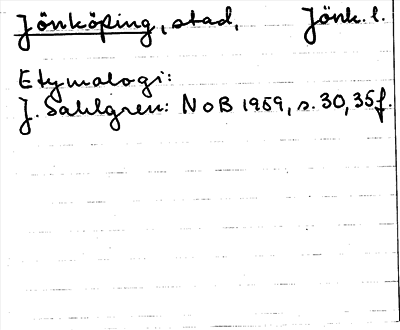 Jönköping, stad, Jönk. l.
Etymologi:
J. Sahlgren: NoB 1959, s. 30, 35f.